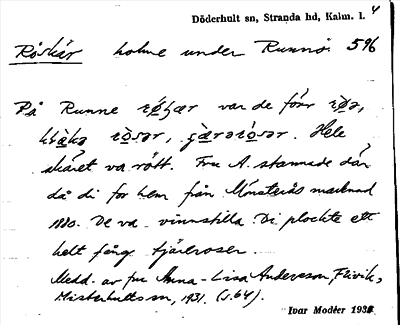 4
Döderhult sn, Stranda hd, Kalm. l.
Röskär holme under Runnö. 596
På Runne var de förr
Hele
skäret va rött. Fru A. stannade där
då di for hem från Mönsterås marknad
1880. De va vinnstilla. Di plockte ett
helt fång tjärrosor.
Medd. av fru Anna-Lisa Andersson, Flivik,
Misterhults sn, 1931. (s. 64).
Ivar Modéer 1932